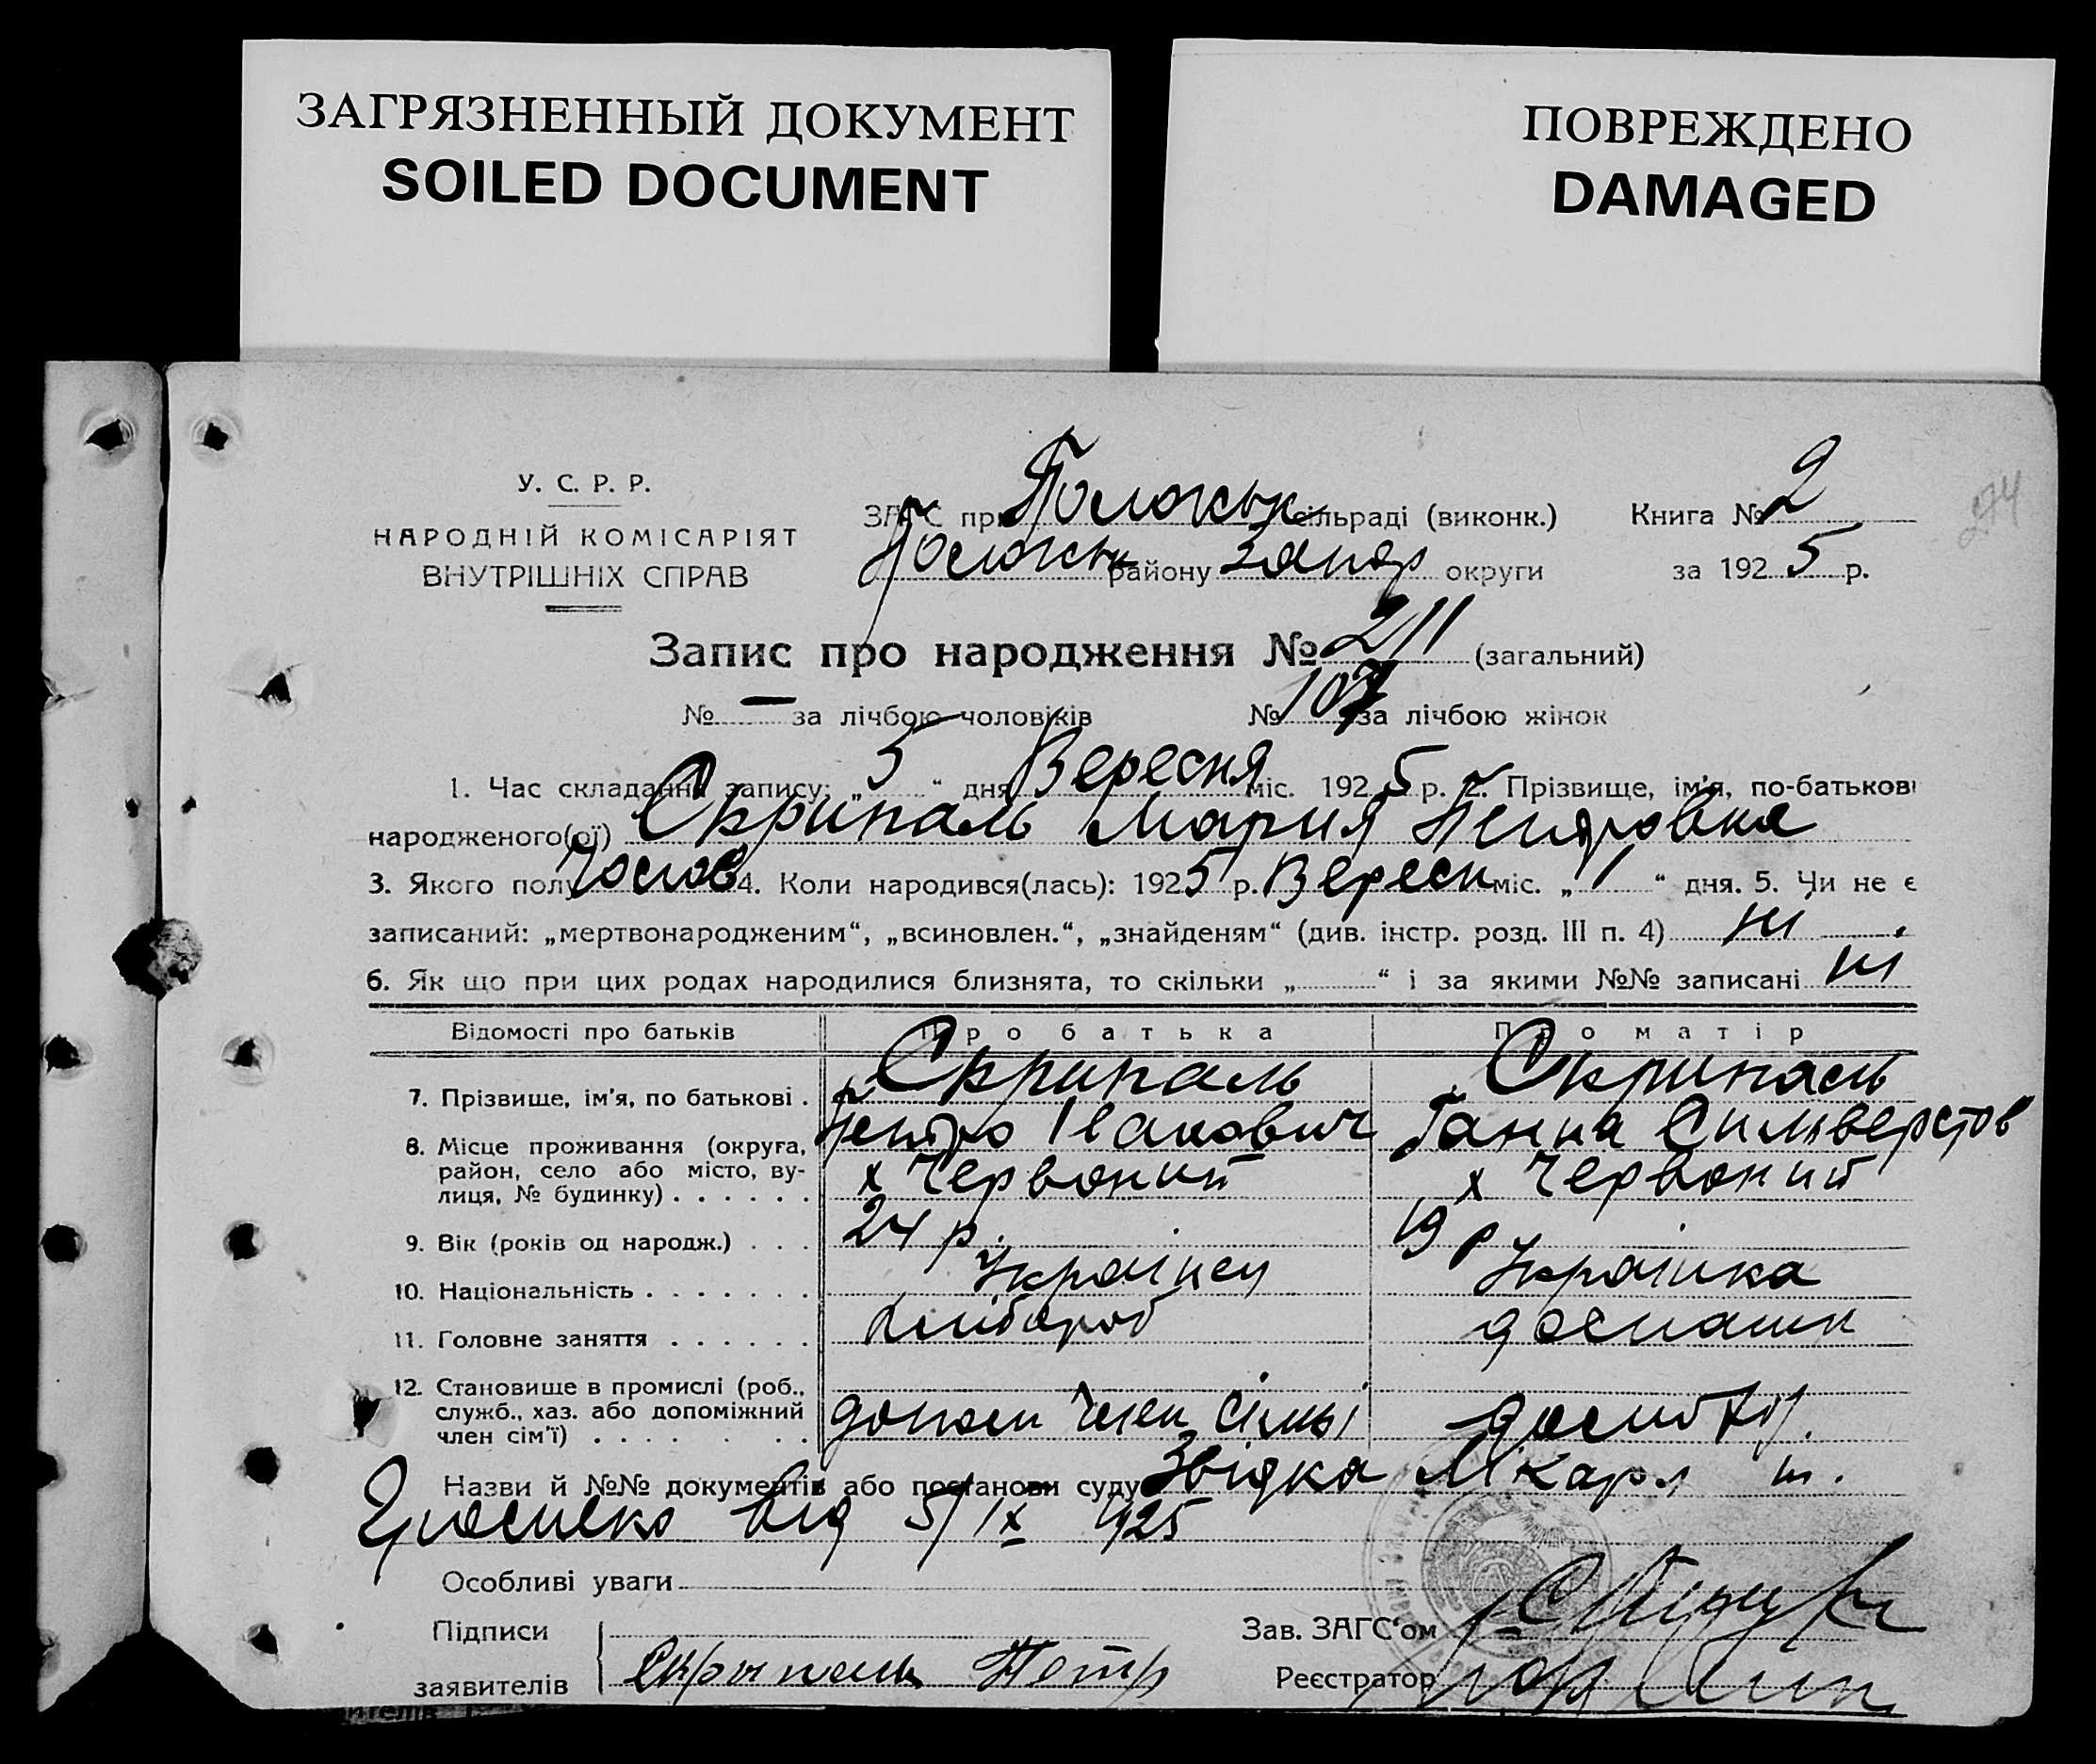 ЗАГРЯЗНЕННЫЙ ДОКУМЕНТ
SOILED DOCUMENT
ПОВРЕЖДЕНО
DAMAGED
У. С. Р. Р.
НАРОДНІЙ КОМІСАРІЯТ
ВНУТРІШНІХ СПРАВ
ЗАГС при Пологськ сільраді (виконк.) Книга № 2
Пологськ району Запор округи за 1925 р.
274
Запис про народження № 211 (загальний)
№ — за лічбою чоловіків № 107 за лічбою жінок
1. Час складання запису: „5“ дня Вересня міс. 1925 р. 2. Прізвище, ім'я, по-батькові
народженого(ої) Скрипаль Мария Петровна
3. Якого полу 4. Коли народився(лась): 1925 р. Вересн міс. „1“ дня. 5. Чи не є
записаний: „мертвонародженим“, „всиновлен.“, „знайденям“ (див. інстр. розд. III п. 4) ні
6. Як що при цих родах народилися близнята, то скільки „ “ і за якими №№ записані ні
Відомості про батьків Про батька Про матір
7. Прізвище, ім'я, по батькові . Скрипаль Петро Іванович Скрипаль Ганна Сильверстов
8. Місце проживання (округа, район, село або місто, вулиця, № будинку) . . . . . . х Червоний х Червоний
9. Вік (років од народж.) . . . 24 р. 19 р
10. Національність . . . . . . . Українец Українка
11. Головне заняття . . . . . . хлібороб домашн
12. Становище в промислі (роб., служб., хаз. або допоміжний член сім'ї) . . . . допом член сімьі
Назви й №№ документів або постанови суду Звідка
від 5/IX 1925
Особливі уваги
Підписи Зав. ЗАГС'ом
заявителів Скрыпаль Петр Реєстратор